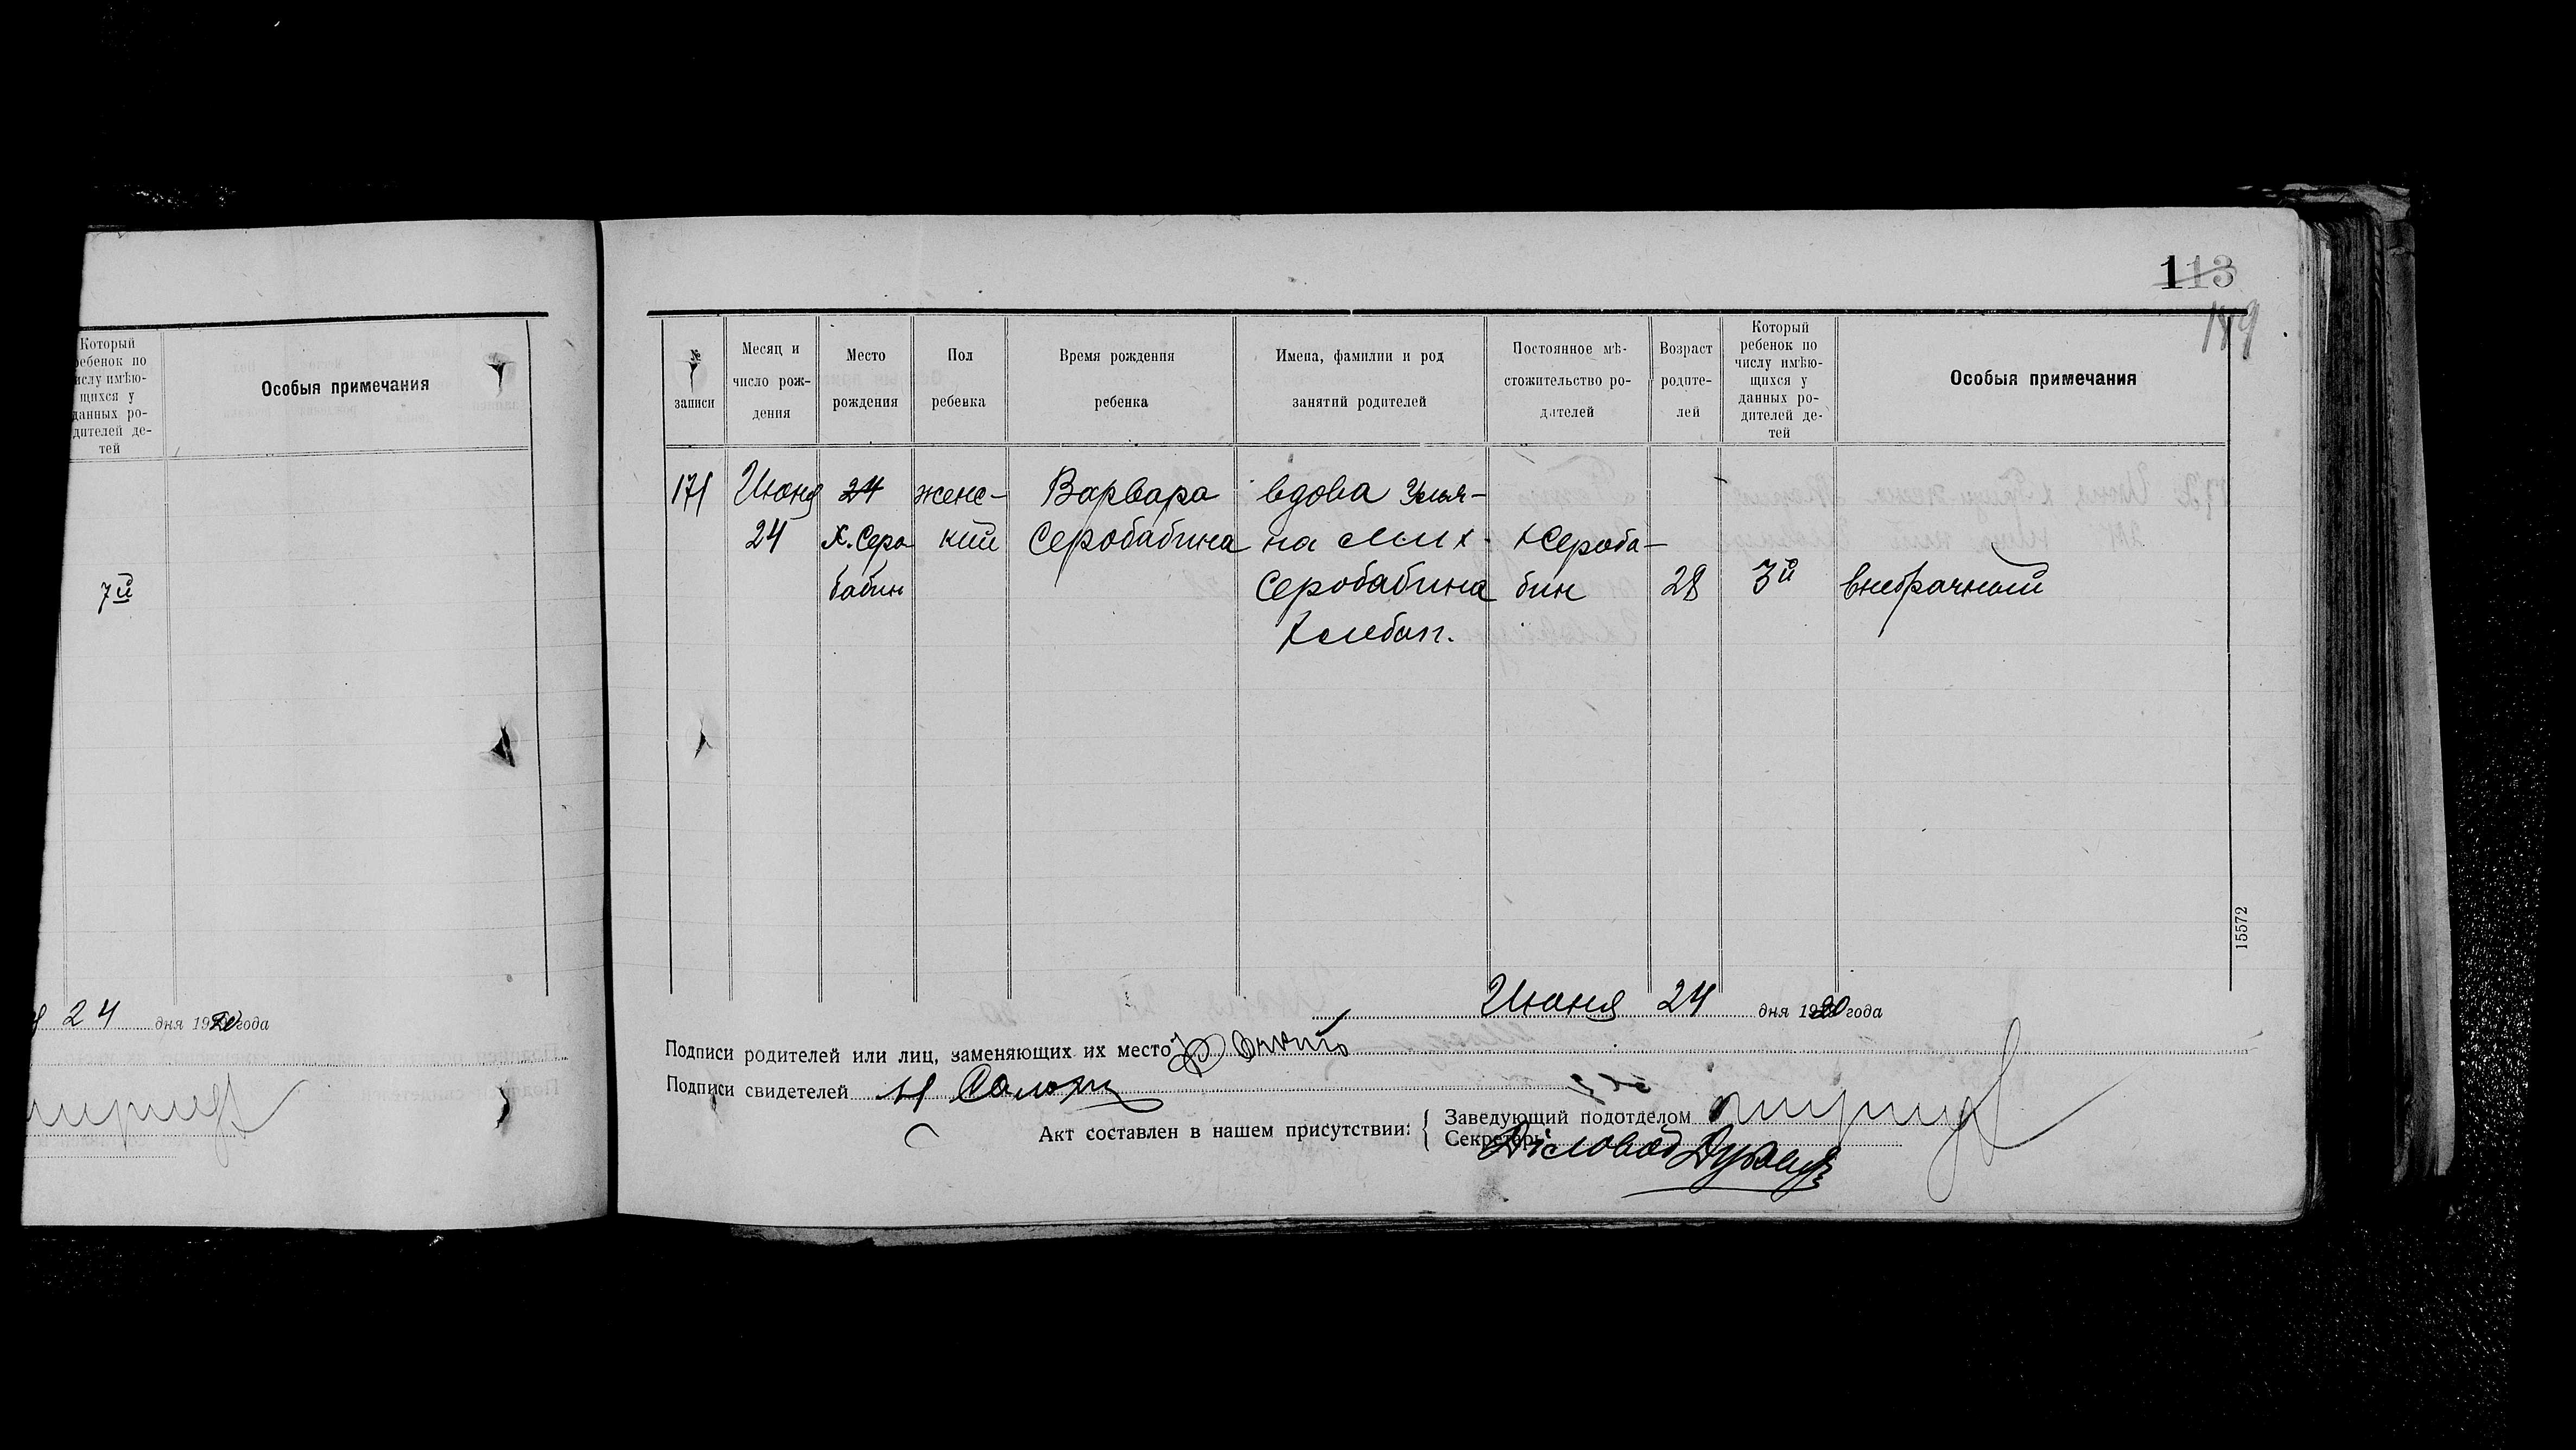 Который
ребенок по
числу имѣю-
щихся у
данных ро-
дителей де-
тей
Особыя примечания
7й
24 дня 1920 года
113
189
№
записи
Месяц и
число рож-
дения
Место
рождения
Пол
ребенка
Время рождения
ребенка
Имена, фамилии и род
занятий родителей
Постоянное мѣ-
стожительство ро-
дителей
Возраст
родите-
лей
Который
ребенок по
числу имѣю-
щихся у
данных ро-
дителей де-
тей
Особыя примечания
171 Июня 24 женс- Варвара вдова Улья-
24 Х. Серо кий Серобабина на Мих. х Сероба-
бабин Серобабина бин 28 3й внебрачный
Хлебоп.
15572
Июня 24 дня 1920 года
Подписи родителей или лиц, заменяющих их место
Подписи свидетелей
Акт составлен в нашем присутствии:
Заведующий подотделом
Секретарь